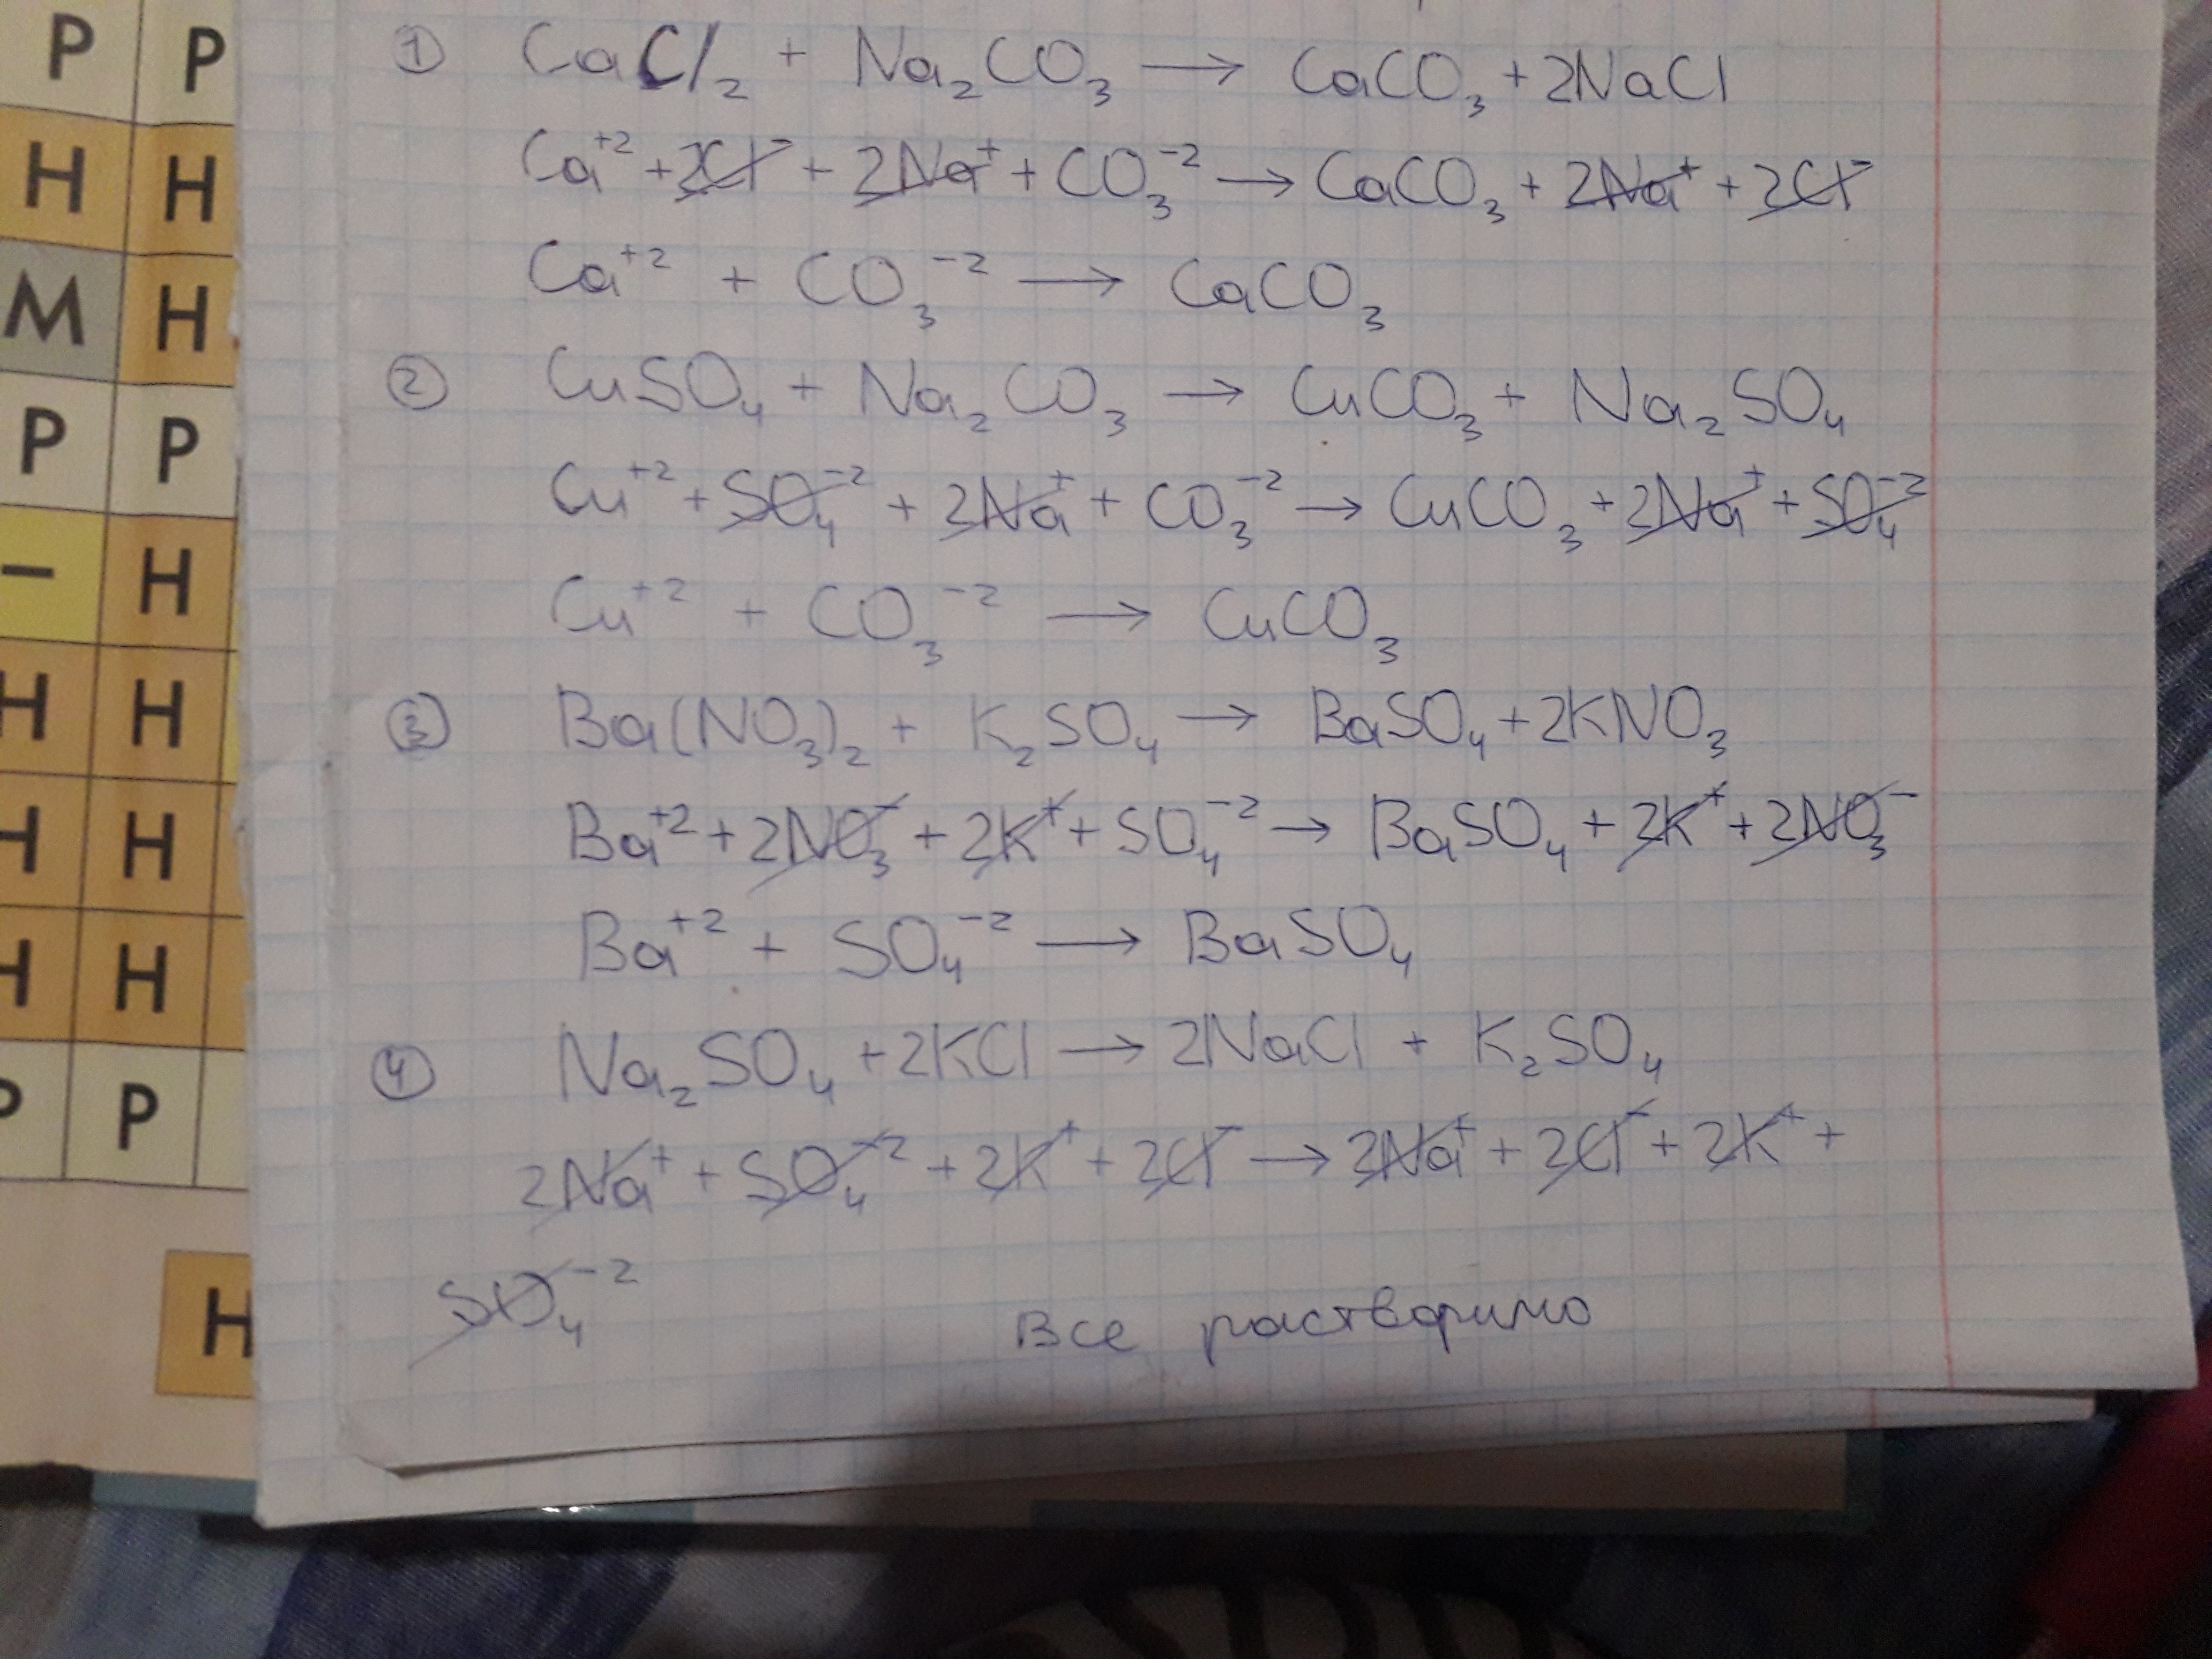 Р Р
Н Н
М Н
Р Р
– Н
Н Н
Н Н
Н Н
Р Р
Н
① CaCl₂ + Na₂CO₃ → CaCO₃ + 2NaCl
Ca⁺² + 2Cl⁻ + 2Na⁺ + CO₃⁻² → CaCO₃ + 2Na⁺ + 2Cl⁻
Ca⁺² + CO₃⁻² → CaCO₃
② CuSO₄ + Na₂CO₃ → CuCO₃ + Na₂SO₄
Cu⁺² + SO₄⁻² + 2Na⁺ + CO₃⁻² → CuCO₃ + 2Na⁺ + SO₄⁻²
Cu⁺² + CO₃⁻² → CuCO₃
③ Ba(NO₃)₂ + K₂SO₄ → BaSO₄ + 2KNO₃
Ba⁺² + 2NO₃⁻ + 2K⁺ + SO₄⁻² → BaSO₄ + 2K⁺ + 2NO₃⁻
Ba⁺² + SO₄⁻² → BaSO₄
④ Na₂SO₄ + 2KCl → 2NaCl + K₂SO₄
2Na⁺ + SO₄⁻² + 2K⁺ + 2Cl⁻ → 2Na⁺ + 2Cl⁻ + 2K⁺ +
SO₄⁻²
Все растворимо